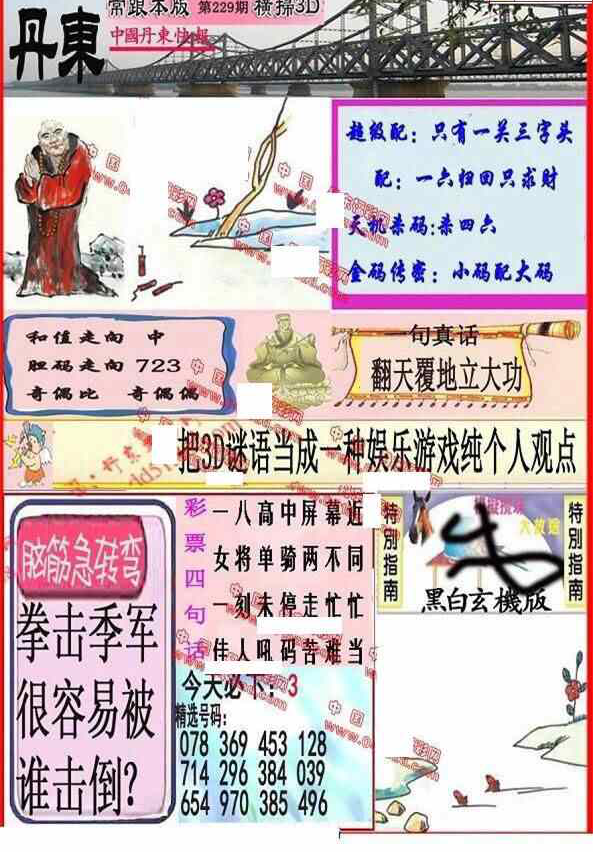 丹東
常跟本版 第229期 橫掃3D
中國丹東快報
超级配：只有一关三字头
配：一六归回只求财
天机杀码:杀四六
金码传密：小码配大码
和值走向 中
胆码走向 723
奇偶比 奇偶偶
一句真话
翻天覆地立大功
把3D谜语当成一种娱乐游戏纯个人观点
脑筋急转弯
拳击季军
很容易被
谁击倒?
彩票四句话
一八高中屏幕近
女将单骑两不同
一刻未停走忙忙
佳人吼码苦难当
今天必下：3
精选号码:
078 369 453 128
714 296 384 039
654 970 385 496
特别指南
特别指南
黑白玄機版